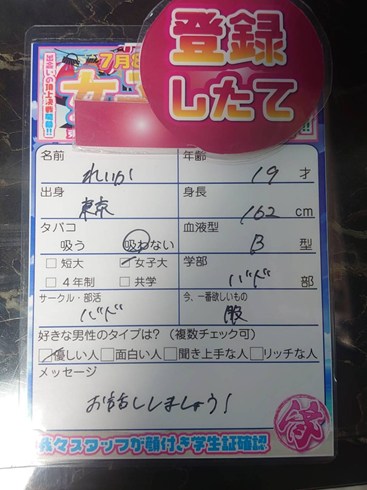 登録
したて
7月
名前 れいか 年齢 19 才
出身 東京 身長 162 cm
タバコ 血液型 B 型
吸う 吸わない
短大 女子大 学部
4年制 共学 バド 部
サークル・部活 今、一番欲しいもの
バド 服
好きな男性のタイプは?(複数チェック可)
優しい人 面白い人 聞き上手な人 リッチな人
メッセージ
お話ししましょう!
我々スタッフが顔付き学生証確認